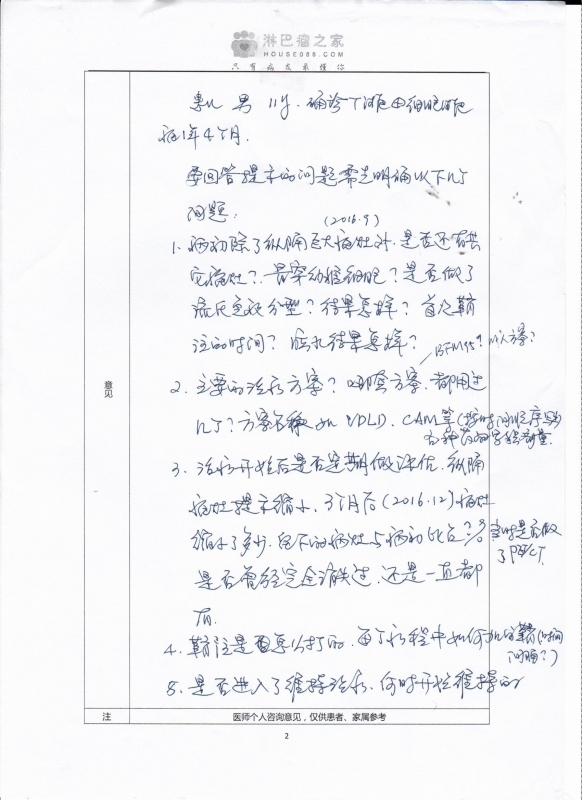 淋巴瘤之家
HOUSE086.COM
只有病友最懂你
男 11岁. 确诊T淋巴母细胞淋巴
瘤1年4个月.
要回答提出的问题需先明确以下几个
问题:
(2016.9)
1. 病初除了纵膈巨大病灶外, 是否还有其
它病灶? 骨穿幼稚细胞? 是否做了
流式免疫分型? 结果怎样? 首次鞘
注的时间? 脑脊液结果怎样?
BFM95? 方案?
2. 主要的治疗方案? 哪些方案, 都用过
几个? 方案名称如 VDLD、CAM等 (按时间顺序写)
各种药的剂量.
3. 治疗开始后是否定期做评估, 纵膈
病灶提示缩小, 3个月后 (2016.12) 病灶
缩小了多少, 留下的病灶与病初比? 当时是否做
了PETCT.
是否曾经完全消失过, 还是一直都
有.
4. 鞘注是怎么打的, 每个疗程中如何
间隔?)
5. 是否进入了维持治疗, 何时开始维持的
意见
注
医师个人咨询意见，仅供患者、家属参考
2